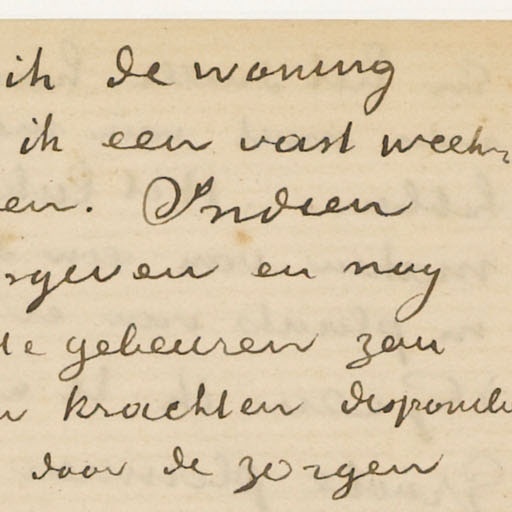 ik de woning
ik een vast week
en. Indien
rgeven en nog
te gebeuren zou
krachten disponibe
door de zorgen